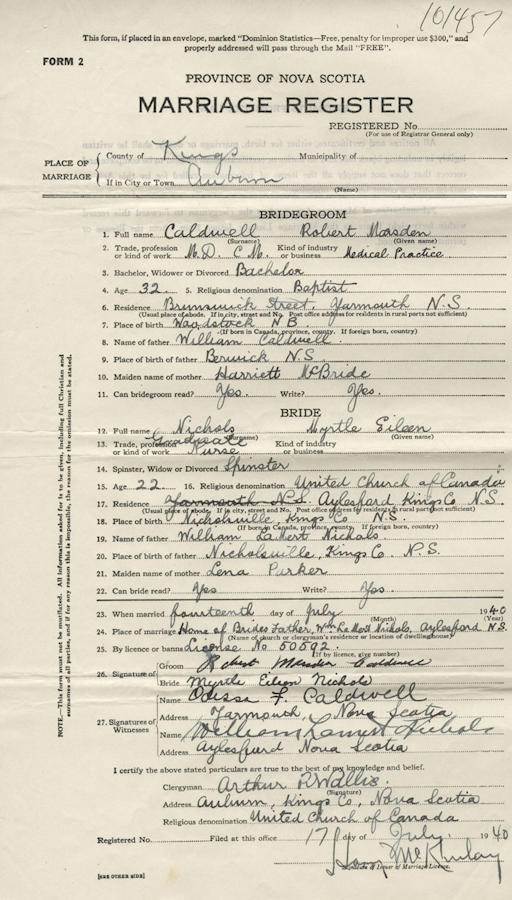 101457
This form, if placed in an envelope, marked "Dominion Statistics—Free, penalty for improper use $300," and
properly addressed will pass through the Mail "FREE".
FORM 2
PROVINCE OF NOVA SCOTIA
MARRIAGE REGISTER
REGISTERED No.
(For use of Registrar General only)
PLACE OF MARRIAGE
County of Kings Municipality of
If in City or Town Auburn
(Name)
BRIDEGROOM
1. Full name Caldwell Robert Marsden
(Surname) (Given name)
2. Trade, profession or kind of work M.D. C.M. Kind of industry or business Medical Practice
3. Bachelor, Widower or Divorced Bachelor
4. Age 32. 5. Religious denomination Baptist
6. Residence Brunswick Street, Yarmouth N.S.
(Usual place of abode. If in city, street and No. Post office address for residents in rural parts not sufficient)
7. Place of birth Woodstock N.B.
(If born in Canada, province, county. If foreign born, country)
8. Name of father William Caldwell
9. Place of father Berwick N.S.
10. Maiden name of mother Harriett McBride
11. Can bridegroom read? Yes. Write? Yes.
BRIDE
12. Full name Nichols Myrtle Eileen
(Surname) (Given name)
13. Trade, profession or kind of work Graduate Nurse Kind of industry or business
14. Spinster, Widow or Divorced Spinster
15. Age 22 16. Religious denomination United Church of Canada
17. Residence Yarmouth N.S. Aylesford Kings Co N.S.
(Usual place of abode. If in city, street and No. Post office address for residents in rural parts not sufficient)
18. Place of birth Nicholsville, Kings Co N.S.
(If born in Canada, province, county. If foreign born, country)
19. Name of father William LaMert Nichols
20. Place of birth of father Nicholsville, Kings Co. N.S.
21. Maiden name of mother Lena Parker
22. Can bride read? Yes Write? Yes.
23. When married fourteenth day of July 1940
(Month) (Year)
24. Place of marriage Home of Brides Father, Wm LaMert Nichols, Aylesford N.S.
(Name of church or clergyman's residence or location of dwellinghouse)
25. By licence or banns License No 50592
(If by licence, give number)
26. Signature of
Groom Robert Marsden Caldwell
Bride Myrtle Eileen Nichols
27. Signatures of Witnesses
Name F. Caldwell
Address Yarmouth, Nova Scotia
Name William Nichols
Address Aylesford Nova Scotia
I certify the above stated particulars are true to the best of my knowledge and belief.
Clergyman Arthur R Wallis.
(Signature)
Address Auburn, Kings Co, Nova Scotia
Religious denomination United Church of Canada
Registered No. Filed at this office 17 day of July 1940
McKinlay
Signature of Issuer of Marriage License.
[SEE OTHER SIDE]
NOTE.—This form must not be mutilated. All information asked for is to be given, including full Christian and
surnames of all parties, and if for any reason this is impossible, the reason for the omission must be stated.